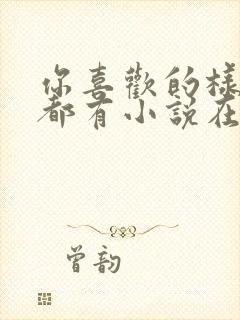 你喜歡的樣
都有小說在
曾韵